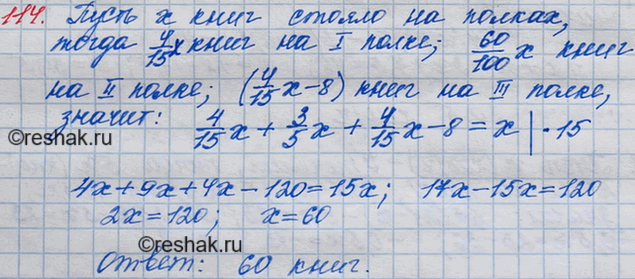 114. Пусть x книг стояло на полках,
тогда 4/15 x книг на I полке; 60/100 x книг
на II полке; (4/15 x - 8) книг на III полке,
значит: 4/15 x + 3/5 x + 4/15 x - 8 = x | · 15
4x + 9x + 4x - 120 = 15x; 17x - 15x = 120
2x = 120; x = 60
Ответ: 60 книг.
©reshak.ru
©reshak.ru